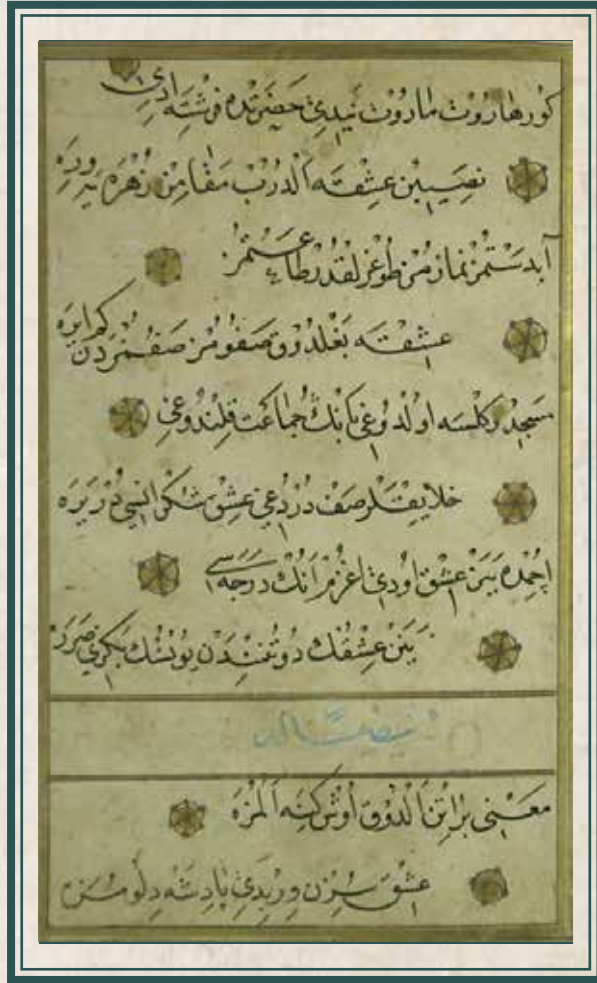 كورهاروت ماروت نيدى حضرتده فرشته ادى
نصيبن عشقته الدرب مقامن زهره يه ويره
آبدستمز نمازمز طوغرلقدر طاعتمز
عشقته بغلدوق صفومز صفمزدن كم ايره
مسجد وكلسه اولدوغى بانك جماعت قلندوغى
خلايقلر صف دردغى عشق شكرانسى دريره
اچمده ينن عشق اودى اغزم انك درجه سى
ينن عشقك دوتنندن يونسك بكزى صررر
معنى براتن الدوق اوش كسه المزه
عشق سوزن ويردى پادشه دلومزه